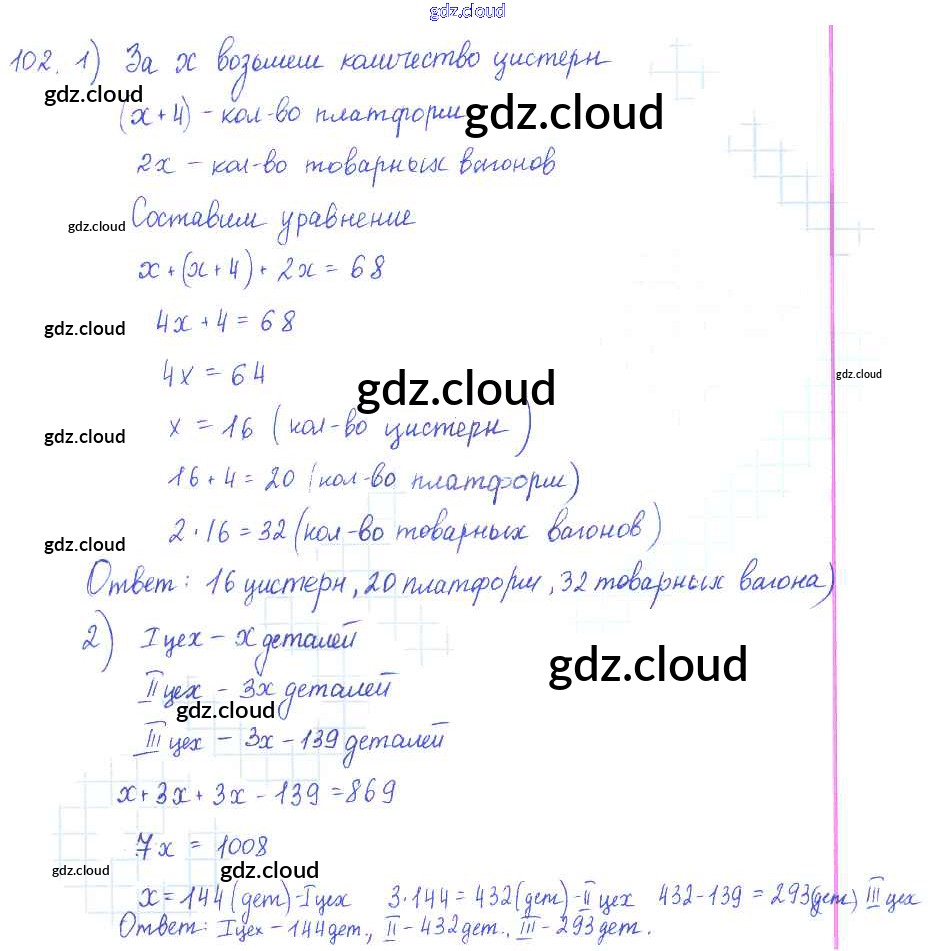 gdz.cloud
102. 1) За x возьмем количество цистерн
gdz.cloud
(x+4) - кол-во платформ gdz.cloud
2x - кол-во товарных вагонов
gdz.cloud Составим уравнение
x + (x+4) + 2x = 68
gdz.cloud 4x + 4 = 68
4x = 64
gdz.cloud gdz.cloud
gdz.cloud x = 16 (кол-во цистерн)
16 + 4 = 20 (кол-во платформ)
2 · 16 = 32 (кол-во товарных вагонов)
gdz.cloud
Ответ: 16 цистерн, 20 платформ, 32 товарных вагона)
2) I цех - x деталей
gdz.cloud
II цех - 3x деталей
gdz.cloud
III цех - 3x - 139 деталей
x + 3x + 3x - 139 = 869
7x = 1008
gdz.cloud gdz.cloud
x = 144 (дет) - I цех 3·144 = 432 (дет) - II цех 432 - 139 = 293 (дет) III цех
Ответ: I цех - 144 дет., II - 432 дет., III - 293 дет.